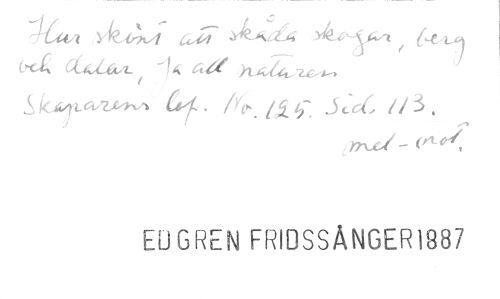 Hur skönt att skåda skogar, berg
och dalar, ja all naturens
Skaparens lof. No. 125. Sid. 113.
mel-not.
EDGREN FRIDSSÅNGER 1887